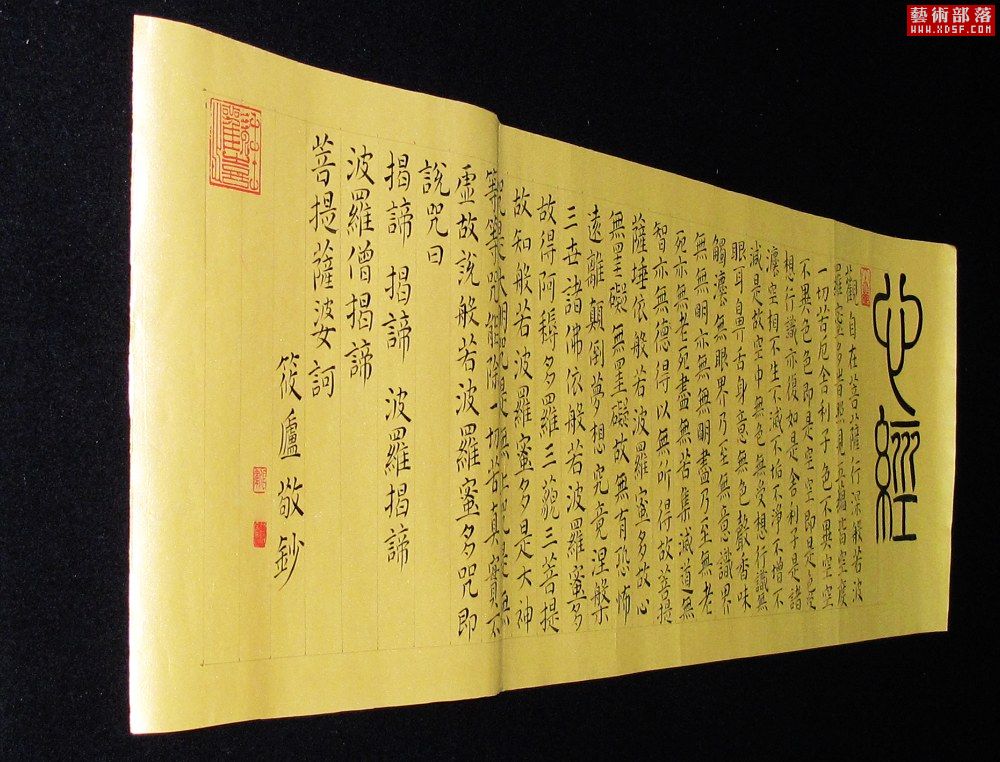 藝術部落
WWW.XDSF.COM
心經
觀自在菩薩行深般若波
羅蜜多時照見五蘊皆空度
一切苦厄舍利子色不異空空
不異色色即是空空即是色受
想行識亦復如是舍利子是諸
灋空相不生不滅不垢不淨不增不
減是故空中無色無受想行識無
眼耳鼻舌身意無色聲香味
觸灋無眼界乃至無意識界
無無明亦無無明盡乃至無老
死亦無老死盡無苦集滅道無
智亦無德得以無所得故菩提
薩埵依般若波羅蜜多故心
無罣礙無罣礙故無有恐怖
遠離顛倒夢想究竟涅槃
三世諸佛依般若波羅蜜多
故得阿耨多羅三藐三菩提
故知般若波羅蜜多是大神
明咒是無上咒是無
等等咒能除一切苦真實不
虛故說般若波羅蜜多咒即
說咒曰
揭諦 揭諦 波羅揭諦
波羅僧揭諦
菩提薩婆訶
筱廬敬鈔